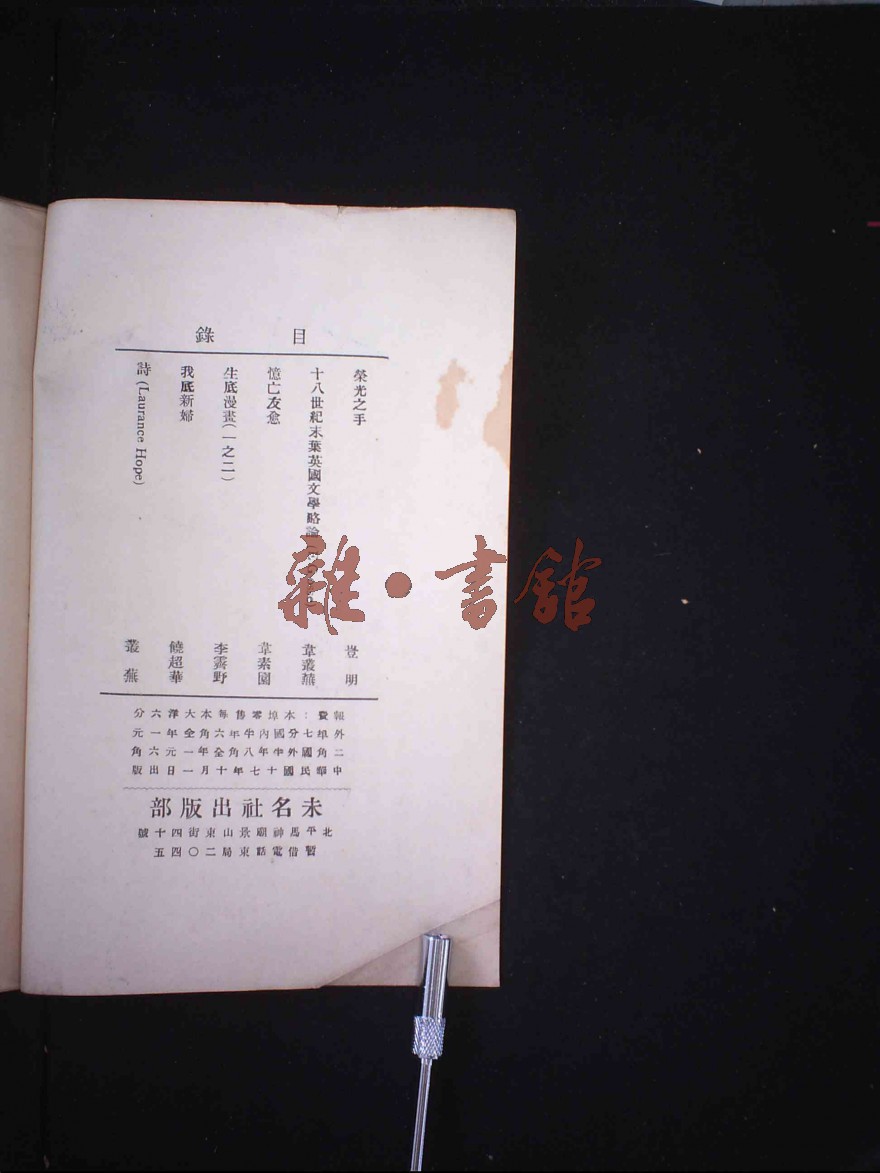 目錄
榮光之手 豈明
十八世紀末葉英國文學略論 韋叢蕪
憶亡友愈 韋素園
生底漫畫(一之二) 李霽野
我底新婦 饒超華
詩 (Laurance Hope) 叢蕪
報費：本埠零售每本大洋六分
外埠七分國內半年六角全年一元
二角國外半年八角全年一元六角
中華民國十七年十月一日出版
未名社出版部
北平馬神廟景山東街四十號
暫借電話東局二〇四五
雜·書館